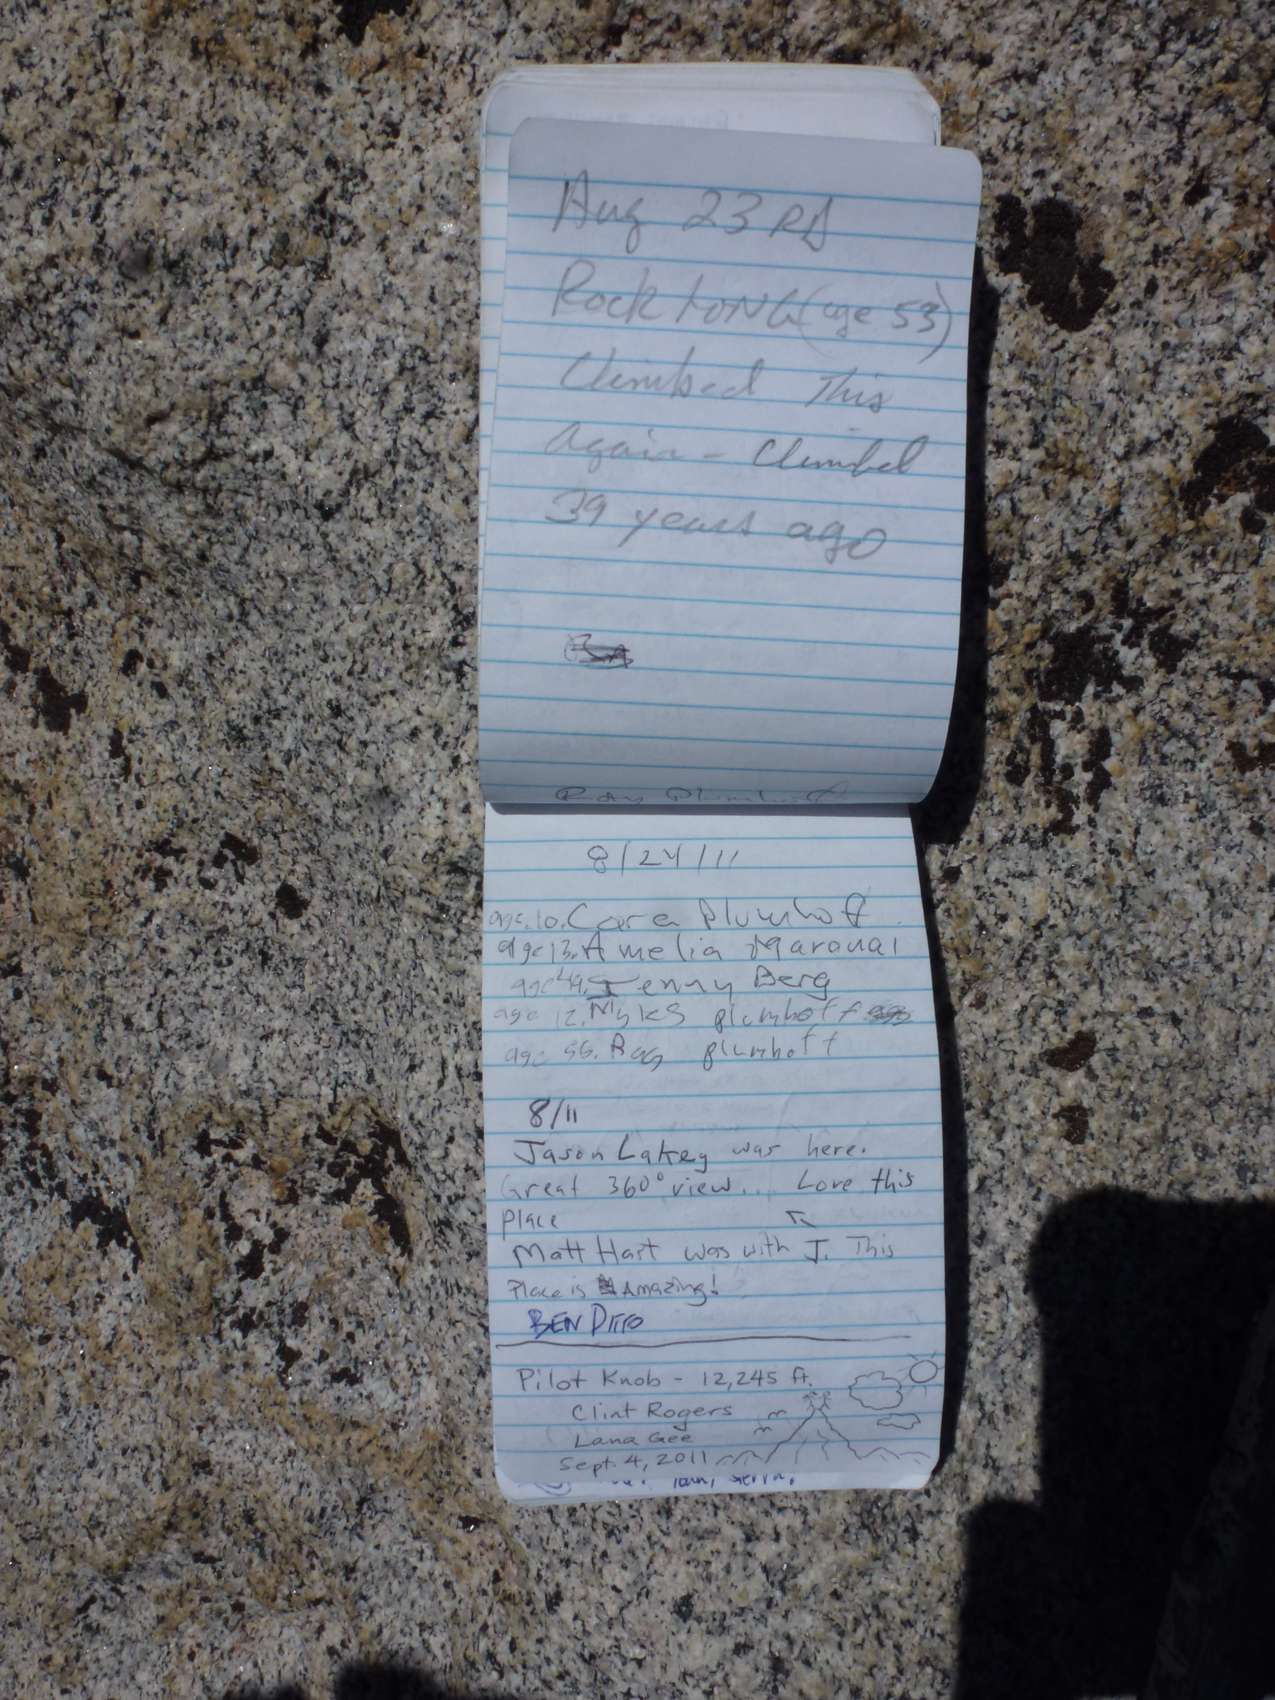 Aug 23 RD
Rock LONG (age 53)
Climbed This
again - Climbed
39 years ago
Ray Plumhoff
8/24/11
age 10. Cara Plumhoff
age 13. Amelia
age 49. Jenny Berg
age 12. plumhoff
age 56. Ray plumhoff
8/11
Jason Lakey was here.
Great 360° view... Love this
place
Matt Hart was with J. This
Place is Amazing!
BEN DITTO
Pilot Knob - 12,245 ft.
Clint Rogers
Lana Gee
Sept. 4, 2011